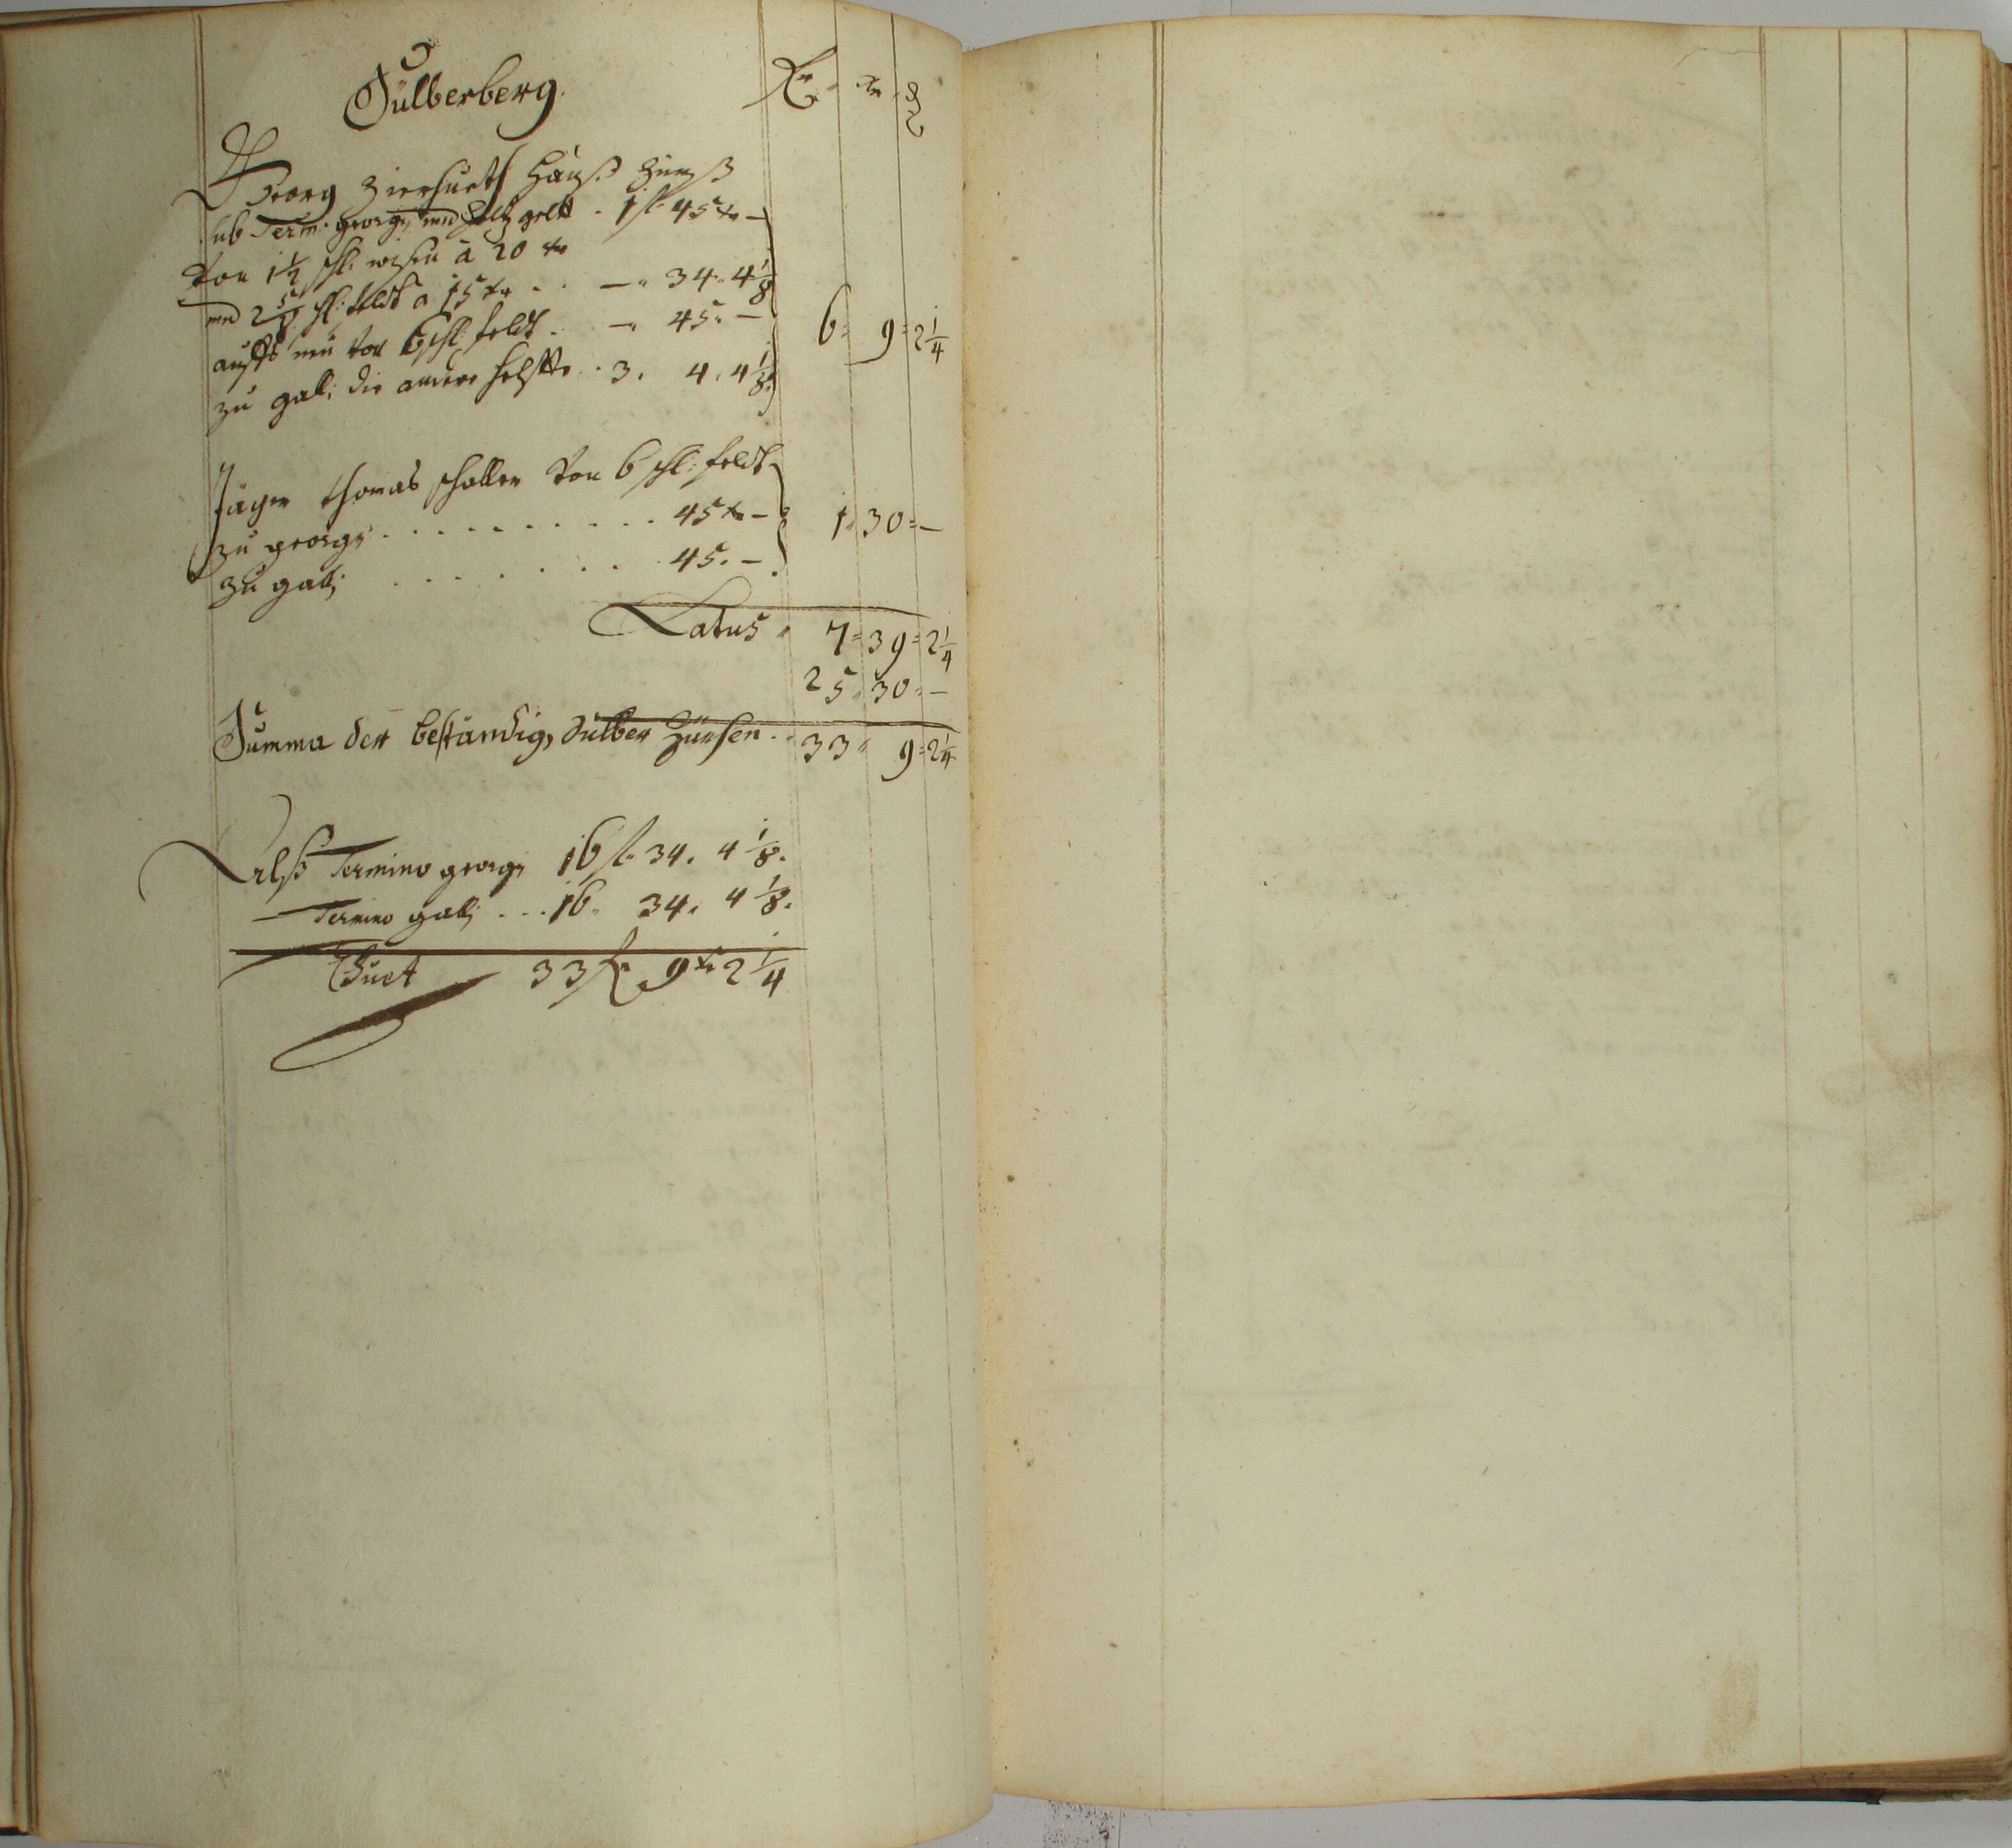 Silberberg.
fl. xr. ₰
Georg Zierhuet Hauß Zinß
sub Term: georgy und Holtz gelt . 1 fl. 45 xr –
Von 1 1/2 schl: wisen à 20 xr
und 2 5/8 schl: feldt à 15 xr . . – . 34. 4 1/8
auffs neu von 6 schl: feldt . – . 45. –
zu gall: die andere helffte . 3. 4. 4 1/8
6 = 9 = 2 1/4
Jäger thomas scholler Von 6 schl: feldt
zu georgy . . . . . . . . . . 45 xr –
zu gallj . . . . . . . 45. –
1 " 30 = –
Latus " 7 = 39 = 2 1/4
25 " 30 " –
Summa der beständig, Silber Zünsen . . 33 " 9 = 2 1/4
Alß Termino georgy 16 fl. 34. 4 1/8.
– Termino gallj . . . 16. 34. 4 1/8.
Thuet 33 fl. 9 xr 2 1/4